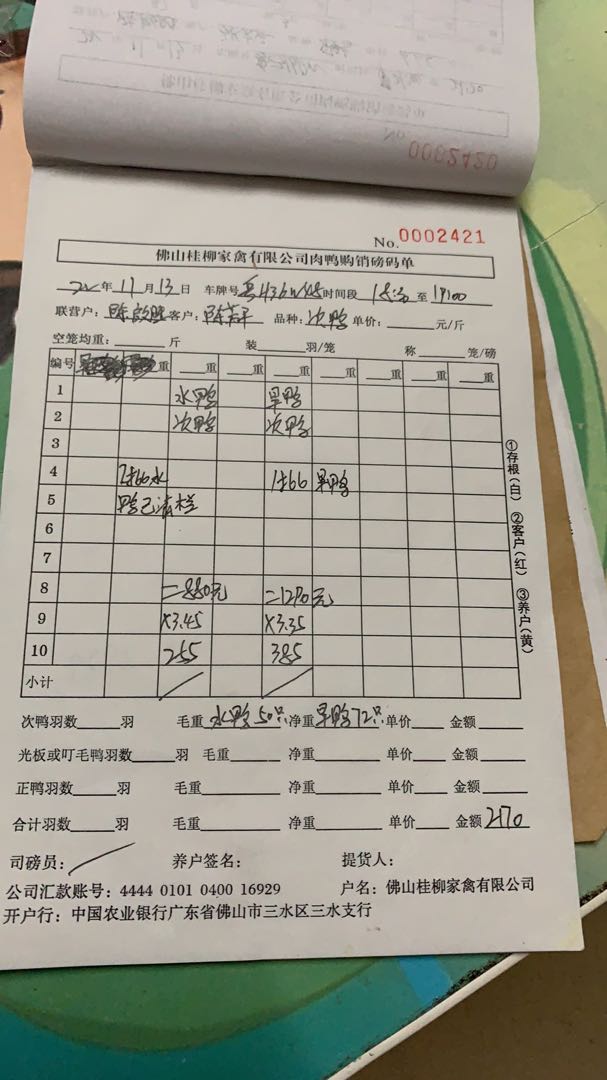 No. 0002421
佛山桂柳家禽有限公司肉鸭购销磅码单
年11月13日 车牌号 时间段 至19:00
联营户： 客户： 品种：次鸭 单价： 元/斤
空笼均重： 斤 装 羽/笼 称 笼/磅
编号 重 重 重 重 重 重 重
1 水鸭 旱鸭
2 次鸭 次鸭
3
4 水 旱鸭
5 鸭已清栏
6
7
8 =880元 =1290元
9 ×3.45 ×3.35
10 255 385
小计
次鸭羽数 羽 毛重 水鸭50只 净重 旱鸭72只 单价 金额
光板或叮毛鸭羽数 羽 毛重 净重 单价 金额
正鸭羽数 羽 毛重 净重 单价 金额
合计羽数 羽 毛重 净重 单价 金额 2170
司磅员： 养户签名： 提货人：
公司汇款账号：4444 0101 0400 16929 户名：佛山桂柳家禽有限公司
开户行：中国农业银行广东省佛山市三水区三水支行
①存根（白） ②客户（红） ③养户（黄）
0002420